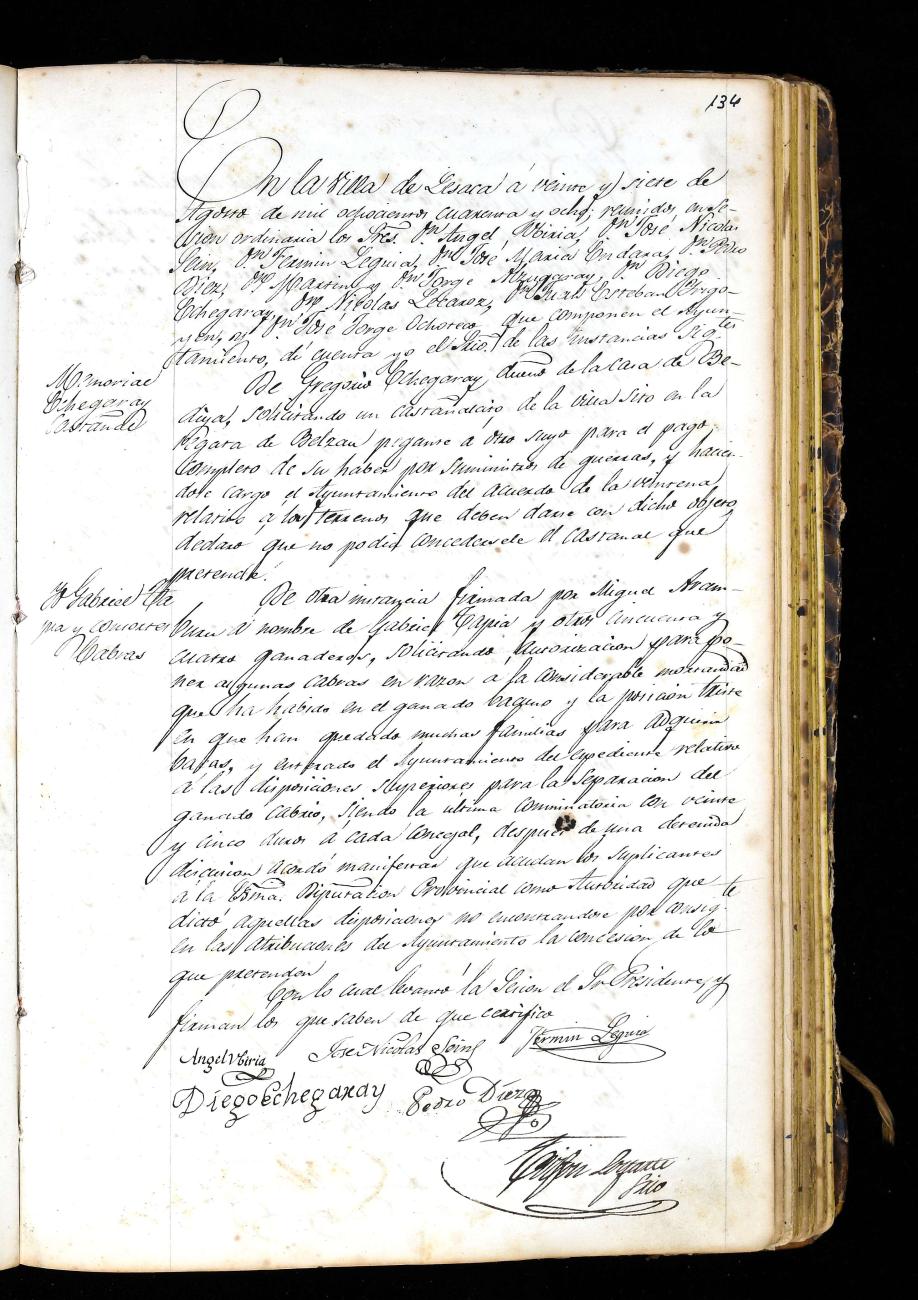 134
En la Villa de Lesaca á veinte y siete de
Agosto de mil ochocientos cuarenta y ocho; reunidos en se-
sion ordinaria los Sres. Dn. Angel Ubiria, Dn. José Nicolas
Sein, Dn. Fermin Leguia, Dn. José Maria Endara, Dn. Pedro
Diez, Dn. Martin y Dn. Jorge Arugaray, Dn. Diego
Echegaray, Dn. Nicolas Lotaroz, Dn. Juan Esteban Errigo-
yen, y Dn. José Jorge Ochoteco que componen el Ayun-
tamiento, dí cuenta yo el Srio. de las instancias sigtes
Memorial
Echegaray
Castañal
De Gregorio Echegaray dueño de la casa de Be-
duya, solicitando un castañalcito de la villa sito en la
regata de Belzau pegante a otro suyo para el pago
completo de su haber por suministros de guerras, y hacien-
dose cargo el Ayuntamiento del acuerdo de la veintena
relativo á los terrenos que deben darse con dicho objeto
declaró que no podia concedersele el castañal que
pretende.
Yt Gabriel Ta
pia y consortes
Cabras
De otra instancia firmada por Miguel Aram-
buru á nombre de Gabriel Tapia y otros cincuenta y
cuatro ganaderos, solicitando autorizacion para po-
ner algunas cabras en razon á la considerable mortandad
que ha habido en el ganado bacuno y la posicion triste
en que han quedado muchas familias para adquirir
bacas, y enterado el Ayuntamiento del espediente relativo
á las disposiciones superiores para la separacion del
ganado cabrio, siendo la ultima conminatoria con veinte
y cinco duros á cada concejal, despues de una detenida
discusion acordó manifestar que acudan los suplicantes
á la Esma. Diputacion Provincial como Autoridad que
dictó aquellas disposiciones no encontrandose por consigte
en las atribuciones del Ayuntamiento la concesion de lo
que pretenden
Con lo cual levantó la Sesion el Sr. Presidente, y
firman los que saben de que certifico
Angel Ubiria José Nicolas Sein Fermin Leguia
Diego Echegaray Pedro Diez
Srio